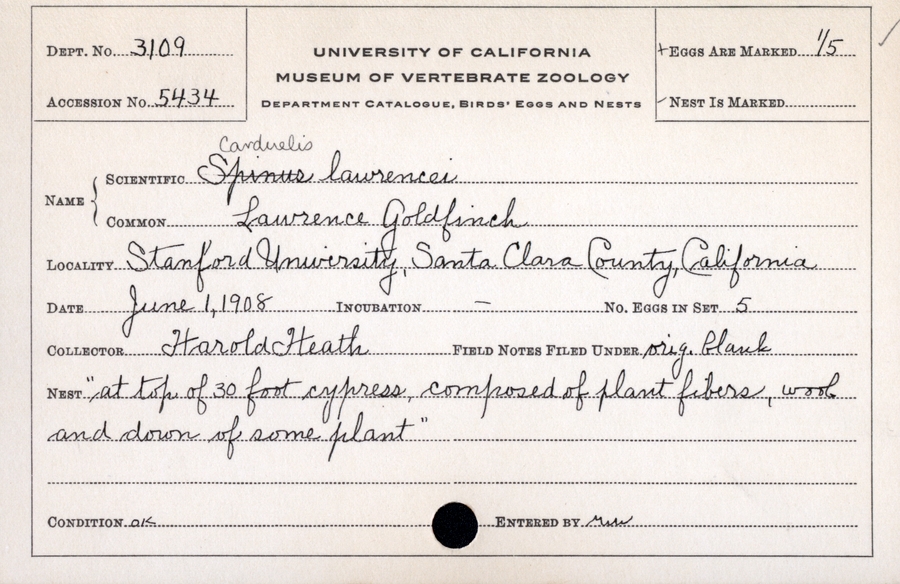 Dept. No. 3109
Accession No. 5434
University of California
Museum of Vertebrate Zoology
Department Catalogue, Birds' Eggs and Nests
+ Eggs Are Marked 1/5
– Nest Is Marked
Carduelis
Name { Scientific Spinus lawrencei
Common Lawrence Goldfinch
Locality Stanford University, Santa Clara County, California
Date June 1, 1908 Incubation – No. Eggs in Set 5
Collector Harold Heath Field Notes Filed Under orig. blank
Nest "at top of 30 foot cypress, composed of plant fibers, wool
and down of some plant"
Condition ok Entered by